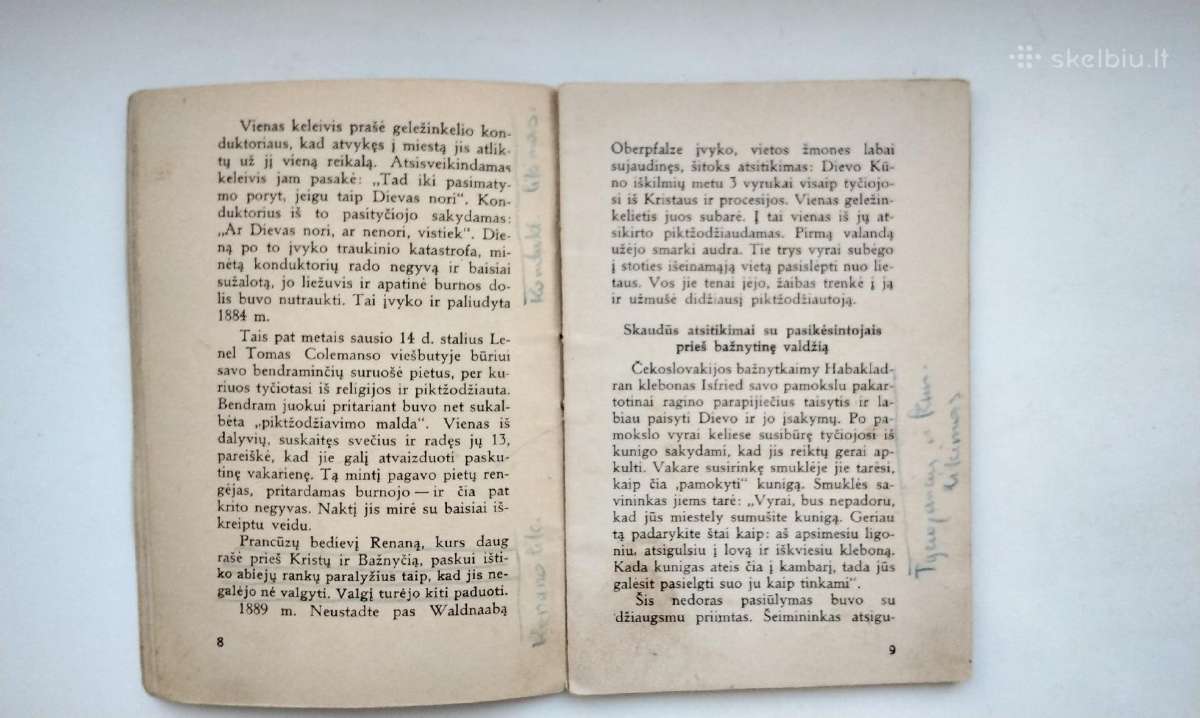 skelbiu.lt
Vienas keleivis prašė geležinkelio kon-
duktoriaus, kad atvykęs į miestą jis atlik-
tų už jį vieną reikalą. Atsisveikindamas
keleivis jam pasakė: „Tad iki pasimaty-
mo poryt, jeigu taip Dievas nori“. Kon-
duktorius iš to pasityčiojo sakydamas:
„Ar Dievas nori, ar nenori, vistiek“. Die-
ną po to įvyko traukinio katastrofa, mi-
nėtą konduktorių rado negyvą ir baisiai
sužalotą, jo liežuvis ir apatinė burnos da-
lis buvo nutraukti. Tai įvyko ir paliudyta
1884 m.
Tais pat metais sausio 14 d. stalius Le-
nel Tomas Colemanso viešbutyje būriui
savo bendraminčių suruošė pietus, per ku-
riuos tyčiotasi iš religijos ir piktžodžiauta.
Bendram juokui pritariant buvo net sukal-
bėta „piktžodžiavimo malda“. Vienas iš
dalyvių, suskaitęs svečius ir radęs jų 13,
pareiškė, kad jie galį atvaizduoti pasku-
tinę vakarienę. Tą mintį pagavo pietų ren-
gėjas, pritardamas burnojo — ir čia pat
krito negyvas. Naktį jis mirė su baisiai iš-
kreiptu veidu.
Prancūzų bedievį Renaną, kurs daug
rašė prieš Kristų ir Bažnyčią, paskui išti-
ko abiejų rankų paralyžius taip, kad jis ne-
galėjo nė valgyti. Valgį turėjo kiti paduoti.
1889 m. Neustadte pas Waldnaabą
8
Oberpfalze įvyko, vietos žmones labai
sujaudinęs, šitoks atsitikimas: Dievo Kū-
no iškilmių metu 3 vyrukai visaip tyčiojo-
si iš Kristaus ir procesijos. Vienas geležin-
kelietis juos subarė. Į tai vienas iš jų at-
sikirto piktžodžiaudamas. Pirmą valandą
užėjo smarki audra. Tie trys vyrai subėgo
į stoties išeinamąją vietą pasislėpti nuo lie-
taus. Vos jie tenai įėjo, žaibas trenkė į ją
ir užmušė didžiausį piktžodžiautoją.
Skaudūs atsitikimai su pasikėsintojais
prieš bažnytinę valdžią
Čekoslovakijos bažnytkaimy Habaklad-
ran klebonas Isfried savo pamokslu pakar-
totinai ragino parapijiečius taisytis ir la-
biau paisyti Dievo ir jo įsakymų. Po pa-
mokslo vyrai keliese susibūrę tyčiojosi iš
kunigo sakydami, kad jis reiktų gerai ap-
kulti. Vakare susirinkę smuklėje jie tarėsi,
kaip čia „pamokyti“ kunigą. Smuklės sa-
vininkas jiems tarė: „Vyrai, bus nepadoru,
kad jūs miestely sumušite kunigą. Geriau
tą padarykite štai kaip: aš apsimesiu ligo-
niu, atsigulsiu į lovą ir iškviesiu kleboną.
Kada kunigas ateis čia į kambarį, tada jūs
galėsit pasielgti suo ju kaip tinkami“.
Šis nedoras pasiūlymas buvo su
džiaugsmu priimtas. Šeimininkas atsigu-
9
likimas